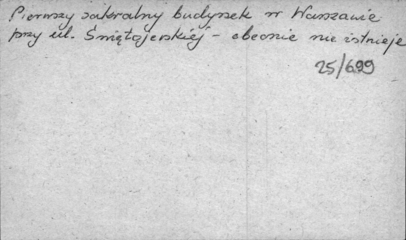 Pierwszy sakralny budynek w Warszawie
przy ul. Świętojerskiej - obecnie nie istnieje
25/699